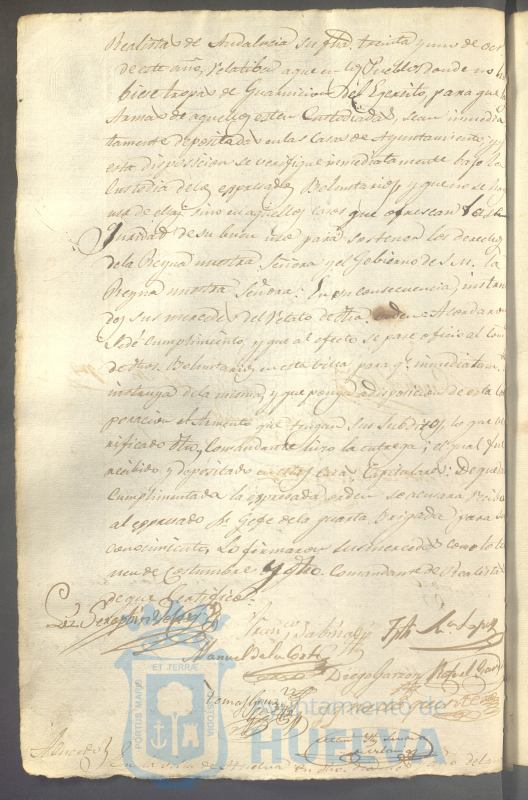 Realistas de Andalucia su fha. treinta y uno de oct
de este año, relativa a que en los Pueblos donde no hu
biese tropas de Guarnicion del Egercito, para que las
armas de aquellos esten Custodiadas, sean inmedia
tamente depositadas en las Casas de Ayuntamiento; y q
esta disposicion se verifique inmediatamente bajo la
Custodia de los espresados Boluntarios, y que no se haga
uso de ellas sino en aquellos casos que ofrescan la se
guridad de su buen uso para sostener los derechos
de la Reyna nuestra Señora y el Gobierno de S.M. la
Reyna nuestra Señora: En su consecuencia, instrui
dos sus mercedes del Relato de dha. orden Acordaron
se dé Cumplimiento, y que al efecto se pase oficio al Com
de dhos. Boluntarios en esta villa, para q. inmediatam.
instruya de la misma, y que ponga a disposicion de esta Cor
poracion el Armento que tengan sus Subditos, lo que ve
rificado dho. Comandante hizo la entrega; el qual fue
recibido y depositado en estas Casas Capitulares: De qued
cumplimentada la espresada orden se acusara recibo
al espresado Sr. Gefe de la quarta Brigada para su
conocimiento, Lo firmaron sus mercedes como lo ti
nen de Costumbre y dho. Comandante de Realistas
de que Certifico
Manuel de la Corte
Diego Garzon Rafael
Tomas
ET TERRÆ
PORTUS MARIS
CUSTODIA
Ayuntamiento de
HUELVA
En la villa de Huelva en